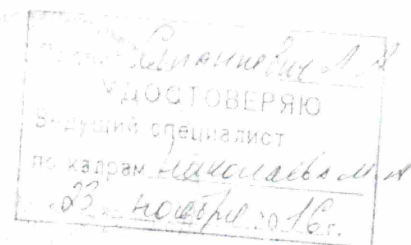 УДОСТОВЕРЯЮ
Ведущий специалист
по кадрам Николаева М А
«23» ноября 2016г.